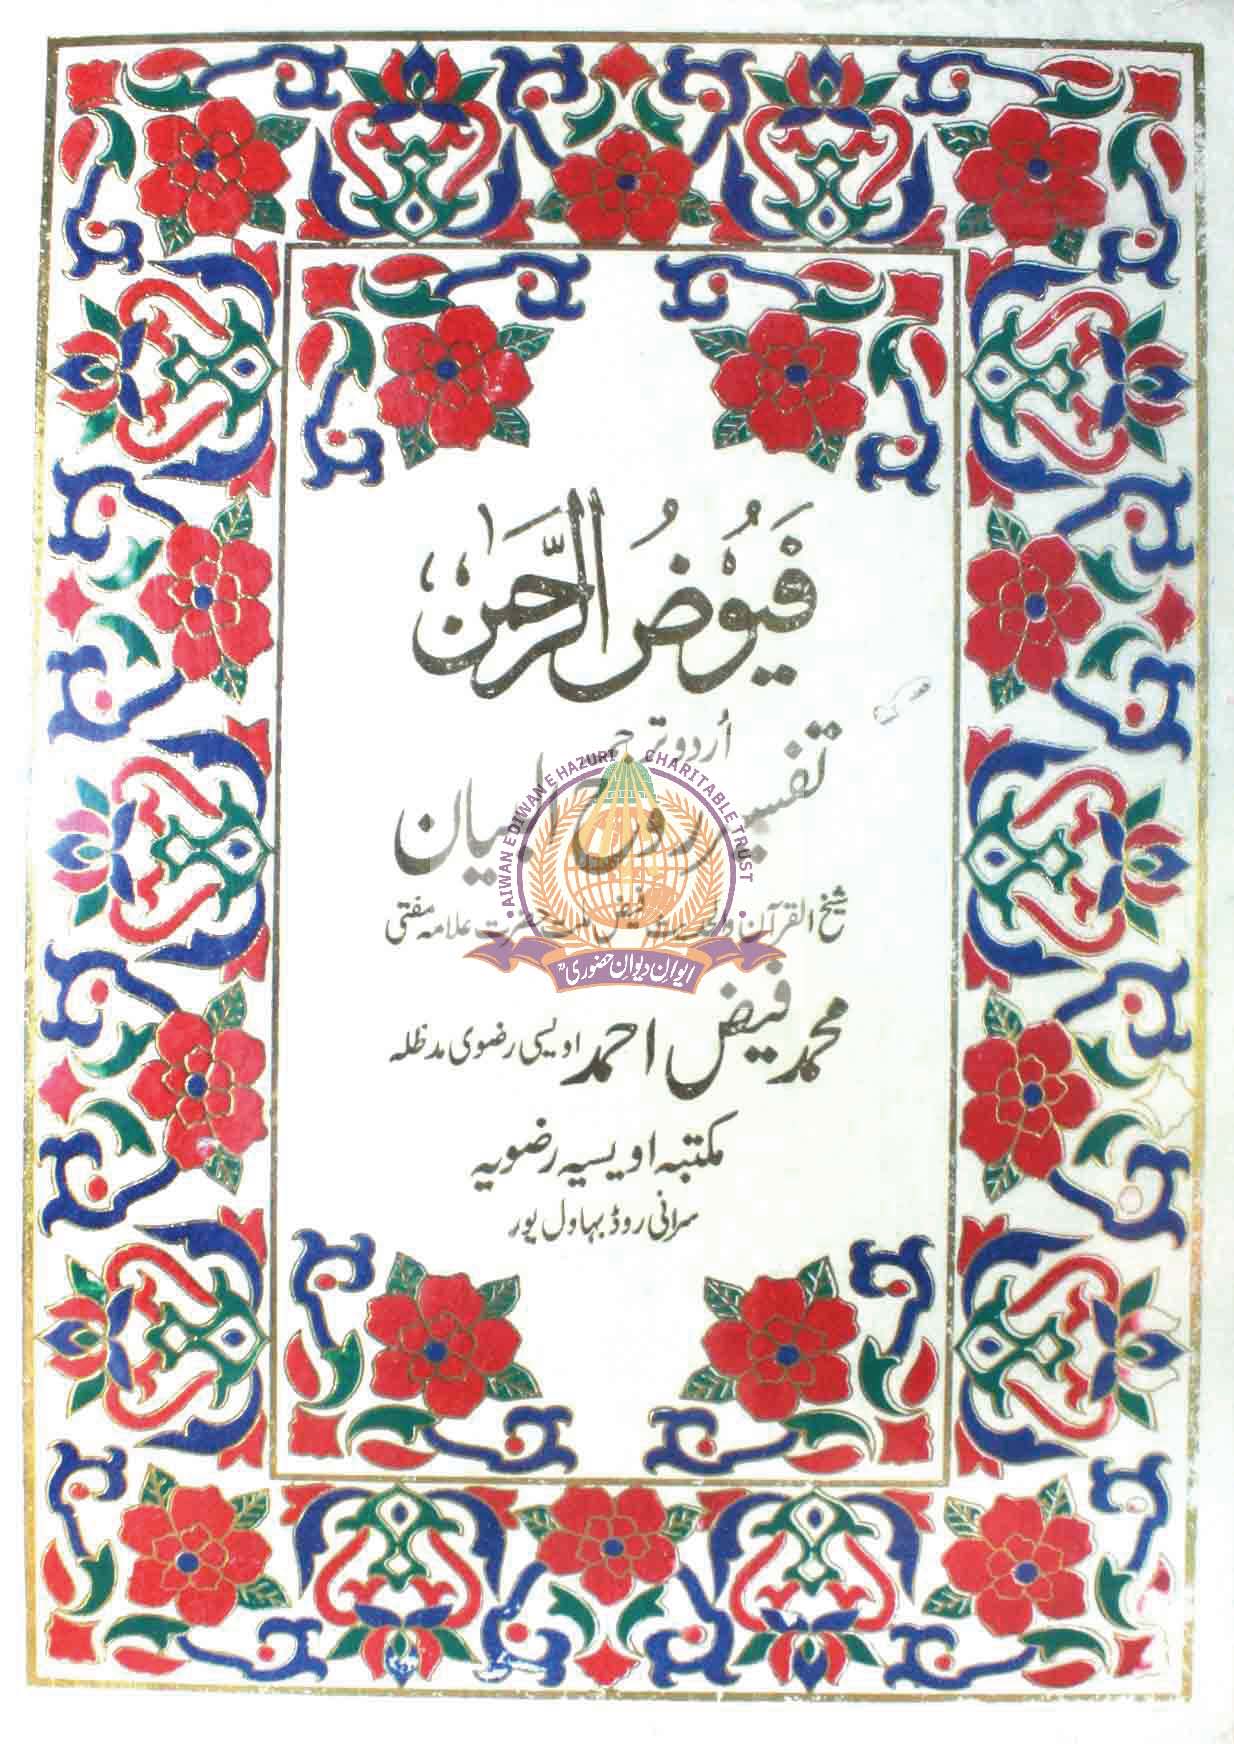 فیوض الرحمٰن
اُردو ترجمہ
تفسیر روح البیان
AIWAN E DIWAN E HAZURI CHARITABLE TRUST
شیخ القرآن والحدیث فیض ملت حضرت علامہ مفتی
ایوانِ دیوانِ حضوری
محمد فیض احمد اویسی رضوی مدظلہ
مکتبہ اویسیہ رضویہ
سرانی روڈ بہاول پور